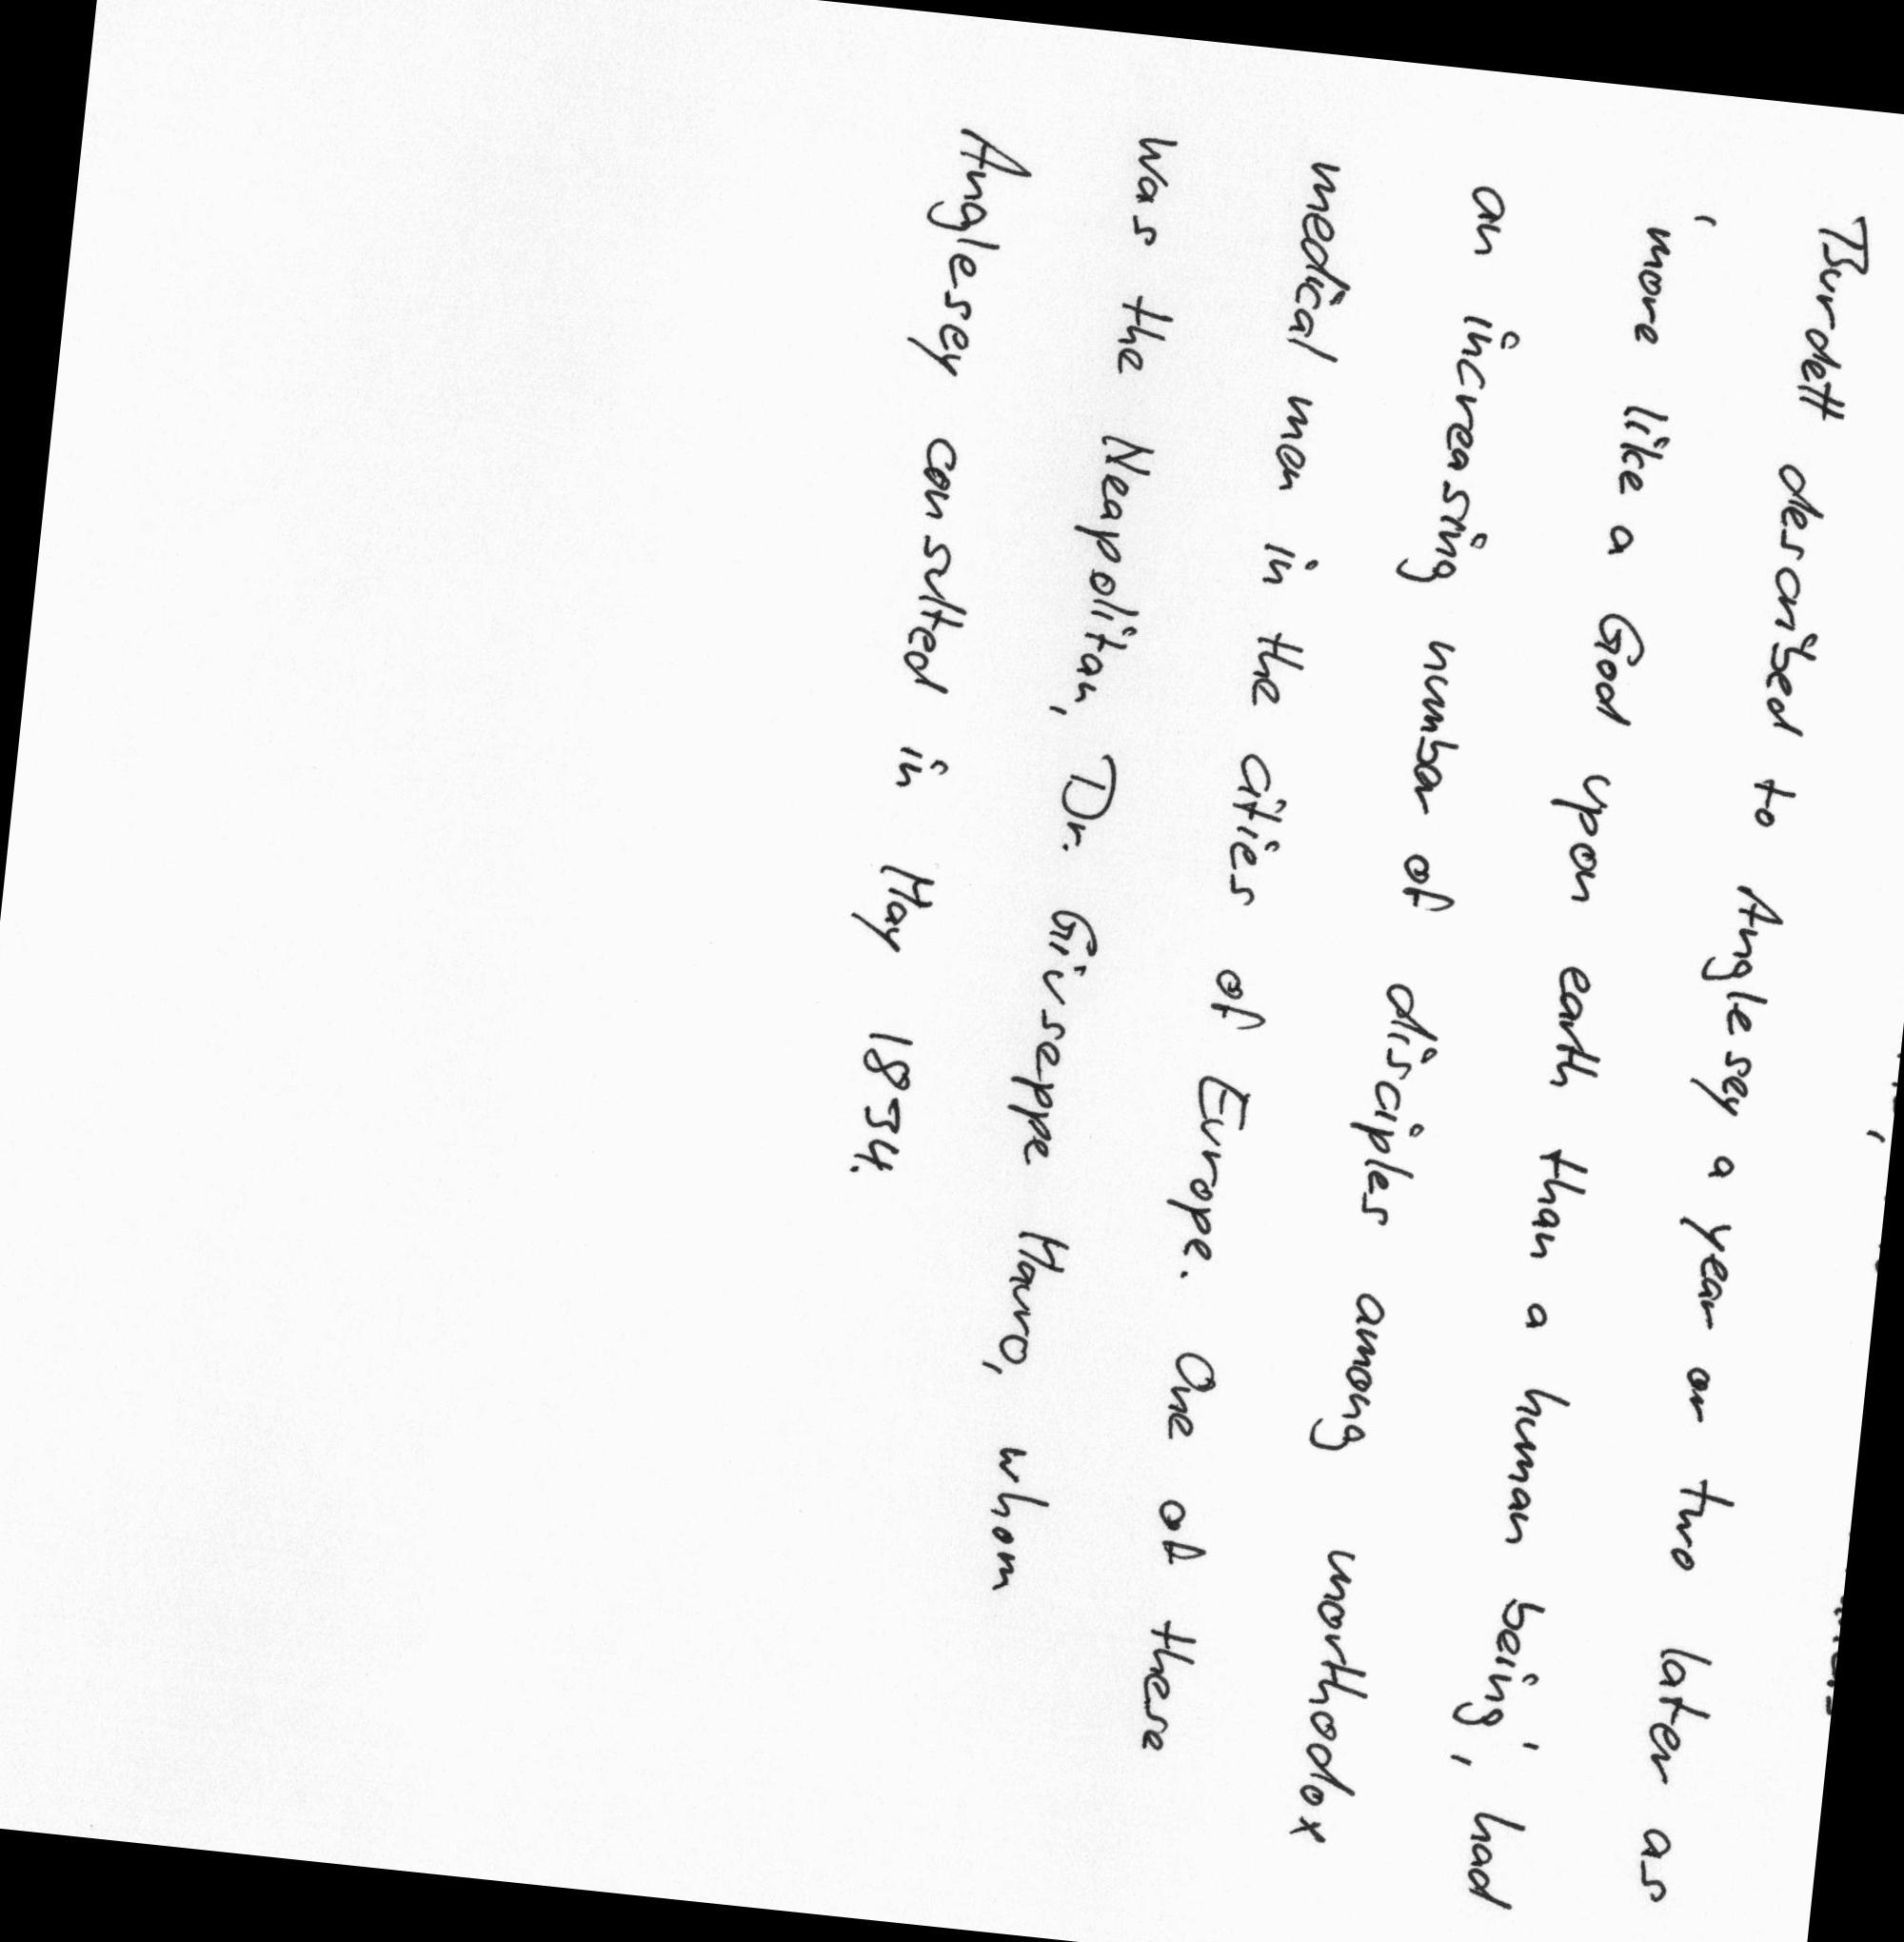 Burdett described to Anglesey a year or two later as
'more like a God upon earth than a human being', had
an increasing number of disciples among unorthodox
medical men in the cities of Europe. One of these
was the Neapolitan, Dr. Giuseppe Mauro, whom
Anglesey consulted in May 1834.